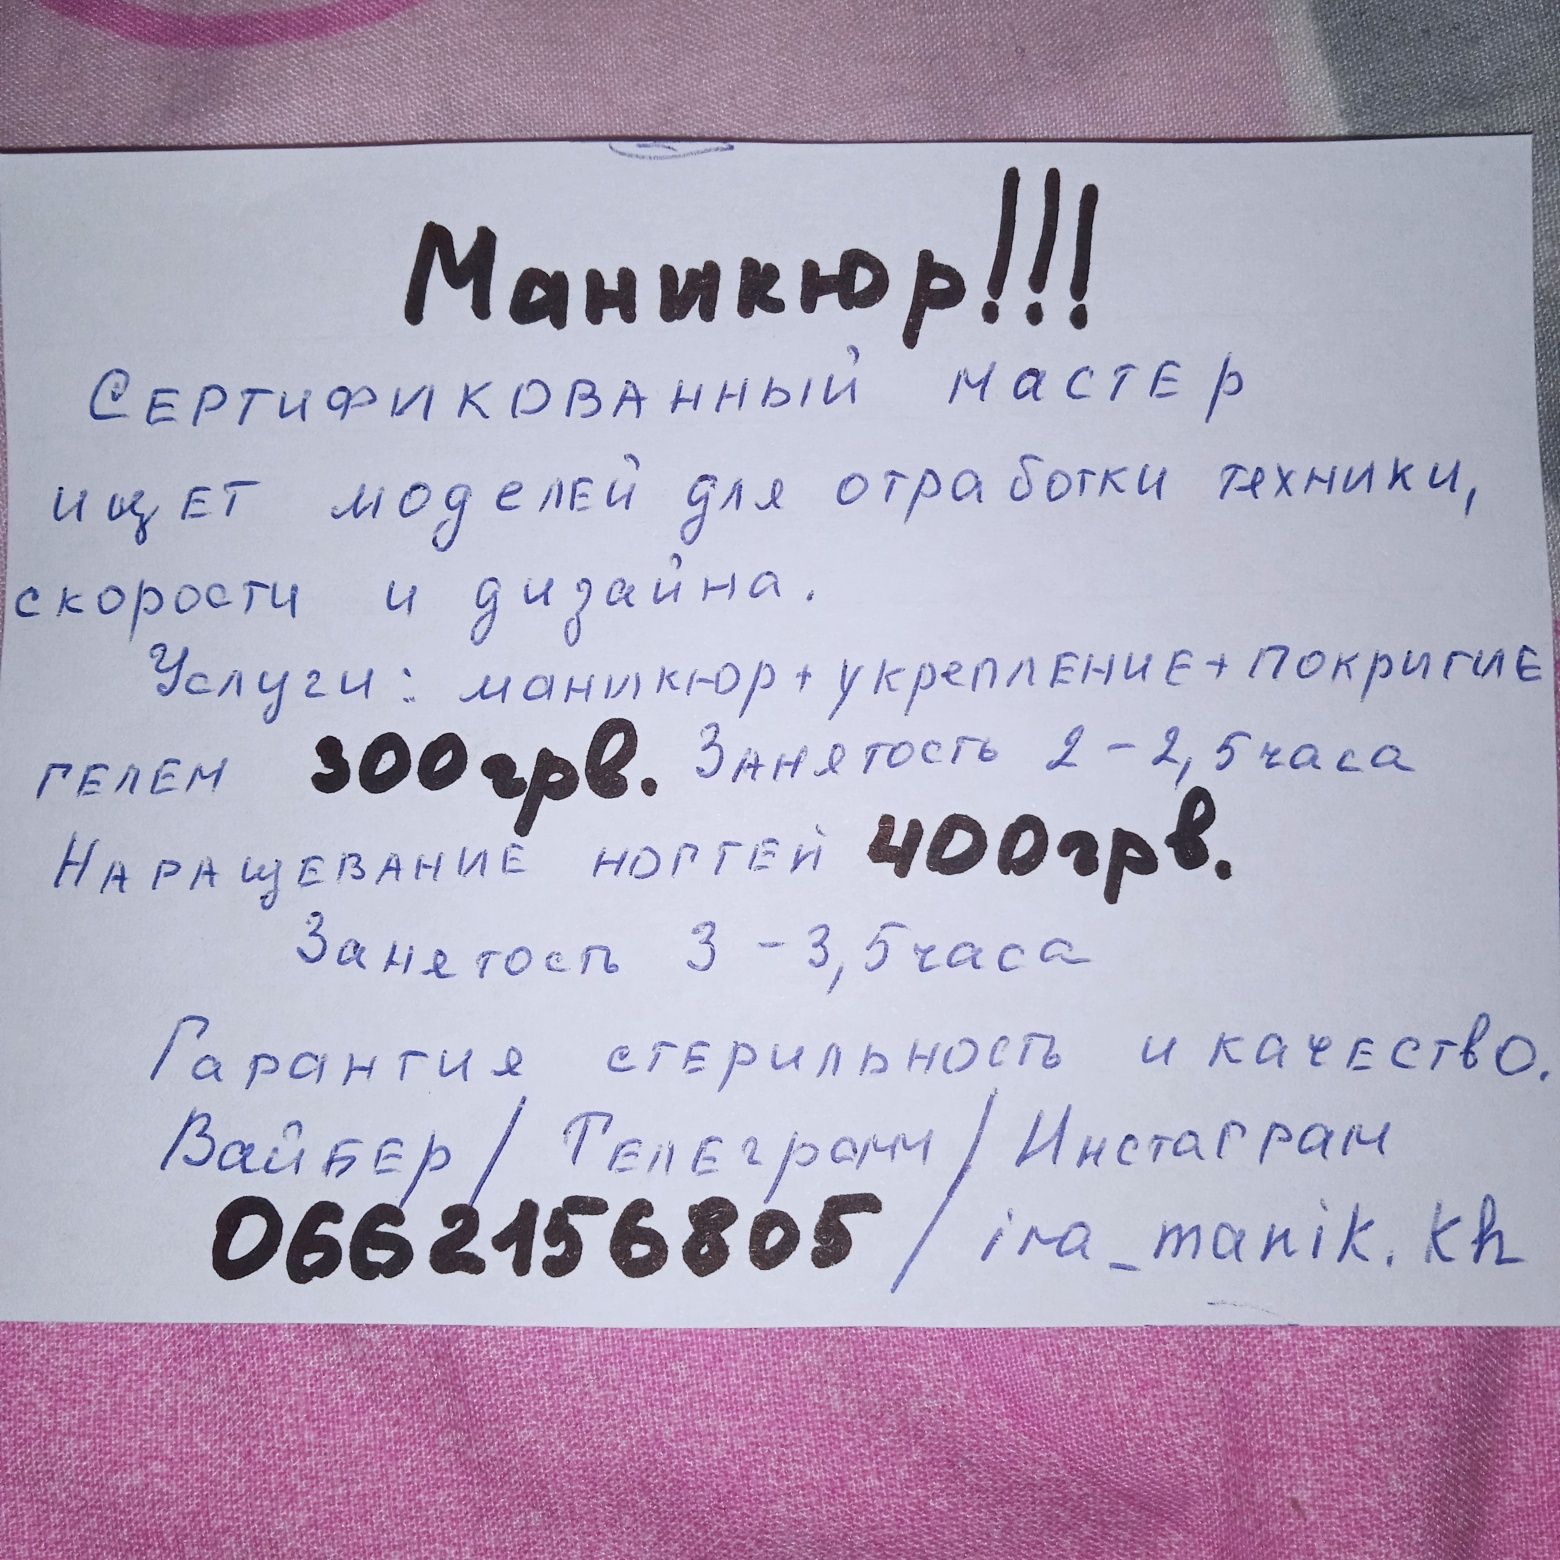 Маникюр!!!
Сертификованный мастер
ищет моделей для отработки техники,
скорости и дизайна.
Услуги: маникюр+укрепление+покритие
гелем 300грв. Занятость 2-2,5часа
Наращевание ногтей 400грв.
Занятость 3-3,5часа
Гарантия стерильность и качество.
Вайбер/Телеграмм/Инстаграм
0662156805/ira_manik.kh